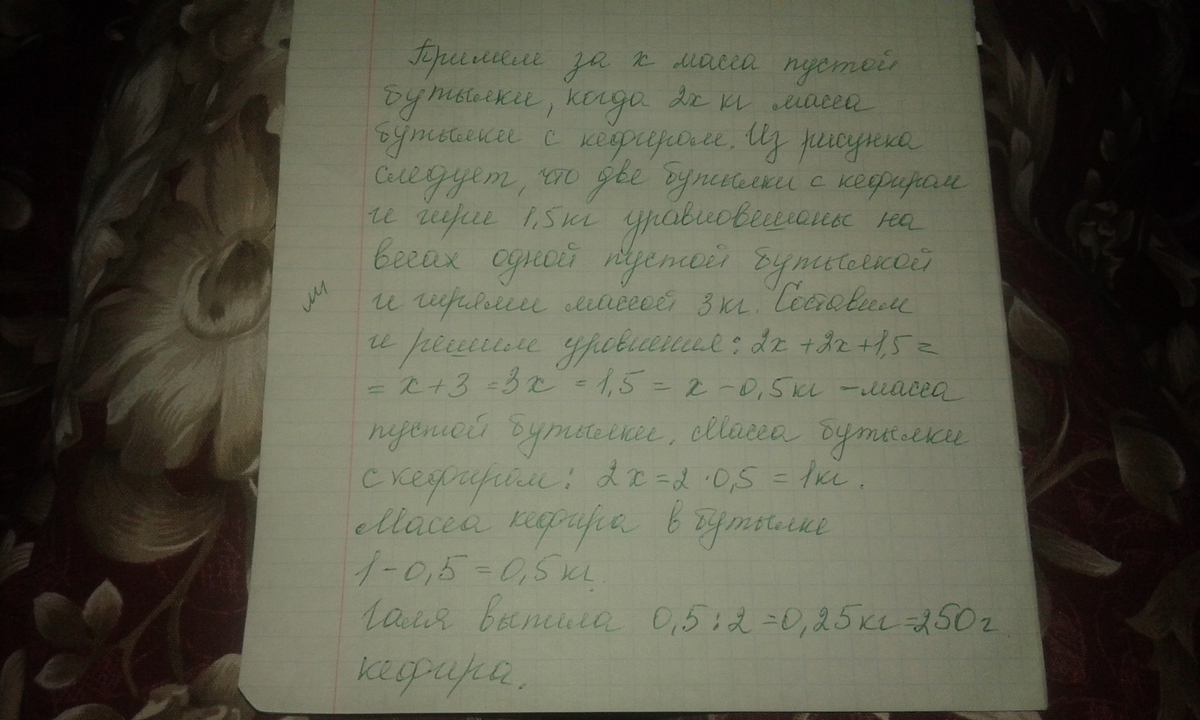 Примем за х масса пустой
бутылки, когда 2х кг масса
бутылки с кефиром. Из рисунка
следует, что две бутылки с кефиром
и гири 1,5кг уравновешаны на
весах одной пустой бутылкой
и гирями массой 3кг. Составим
и решим уровнение: 2х+2х+1,5=
= х+3 =3х =1,5 = х -0,5кг -масса
пустой бутылки. Масса бутылки
с кефиром: 2х=2·0,5 =1кг.
Масса кефира в бутылке
1-0,5=0,5кг.
Галя выпила 0,5:2=0,25кг=250г
кефира.